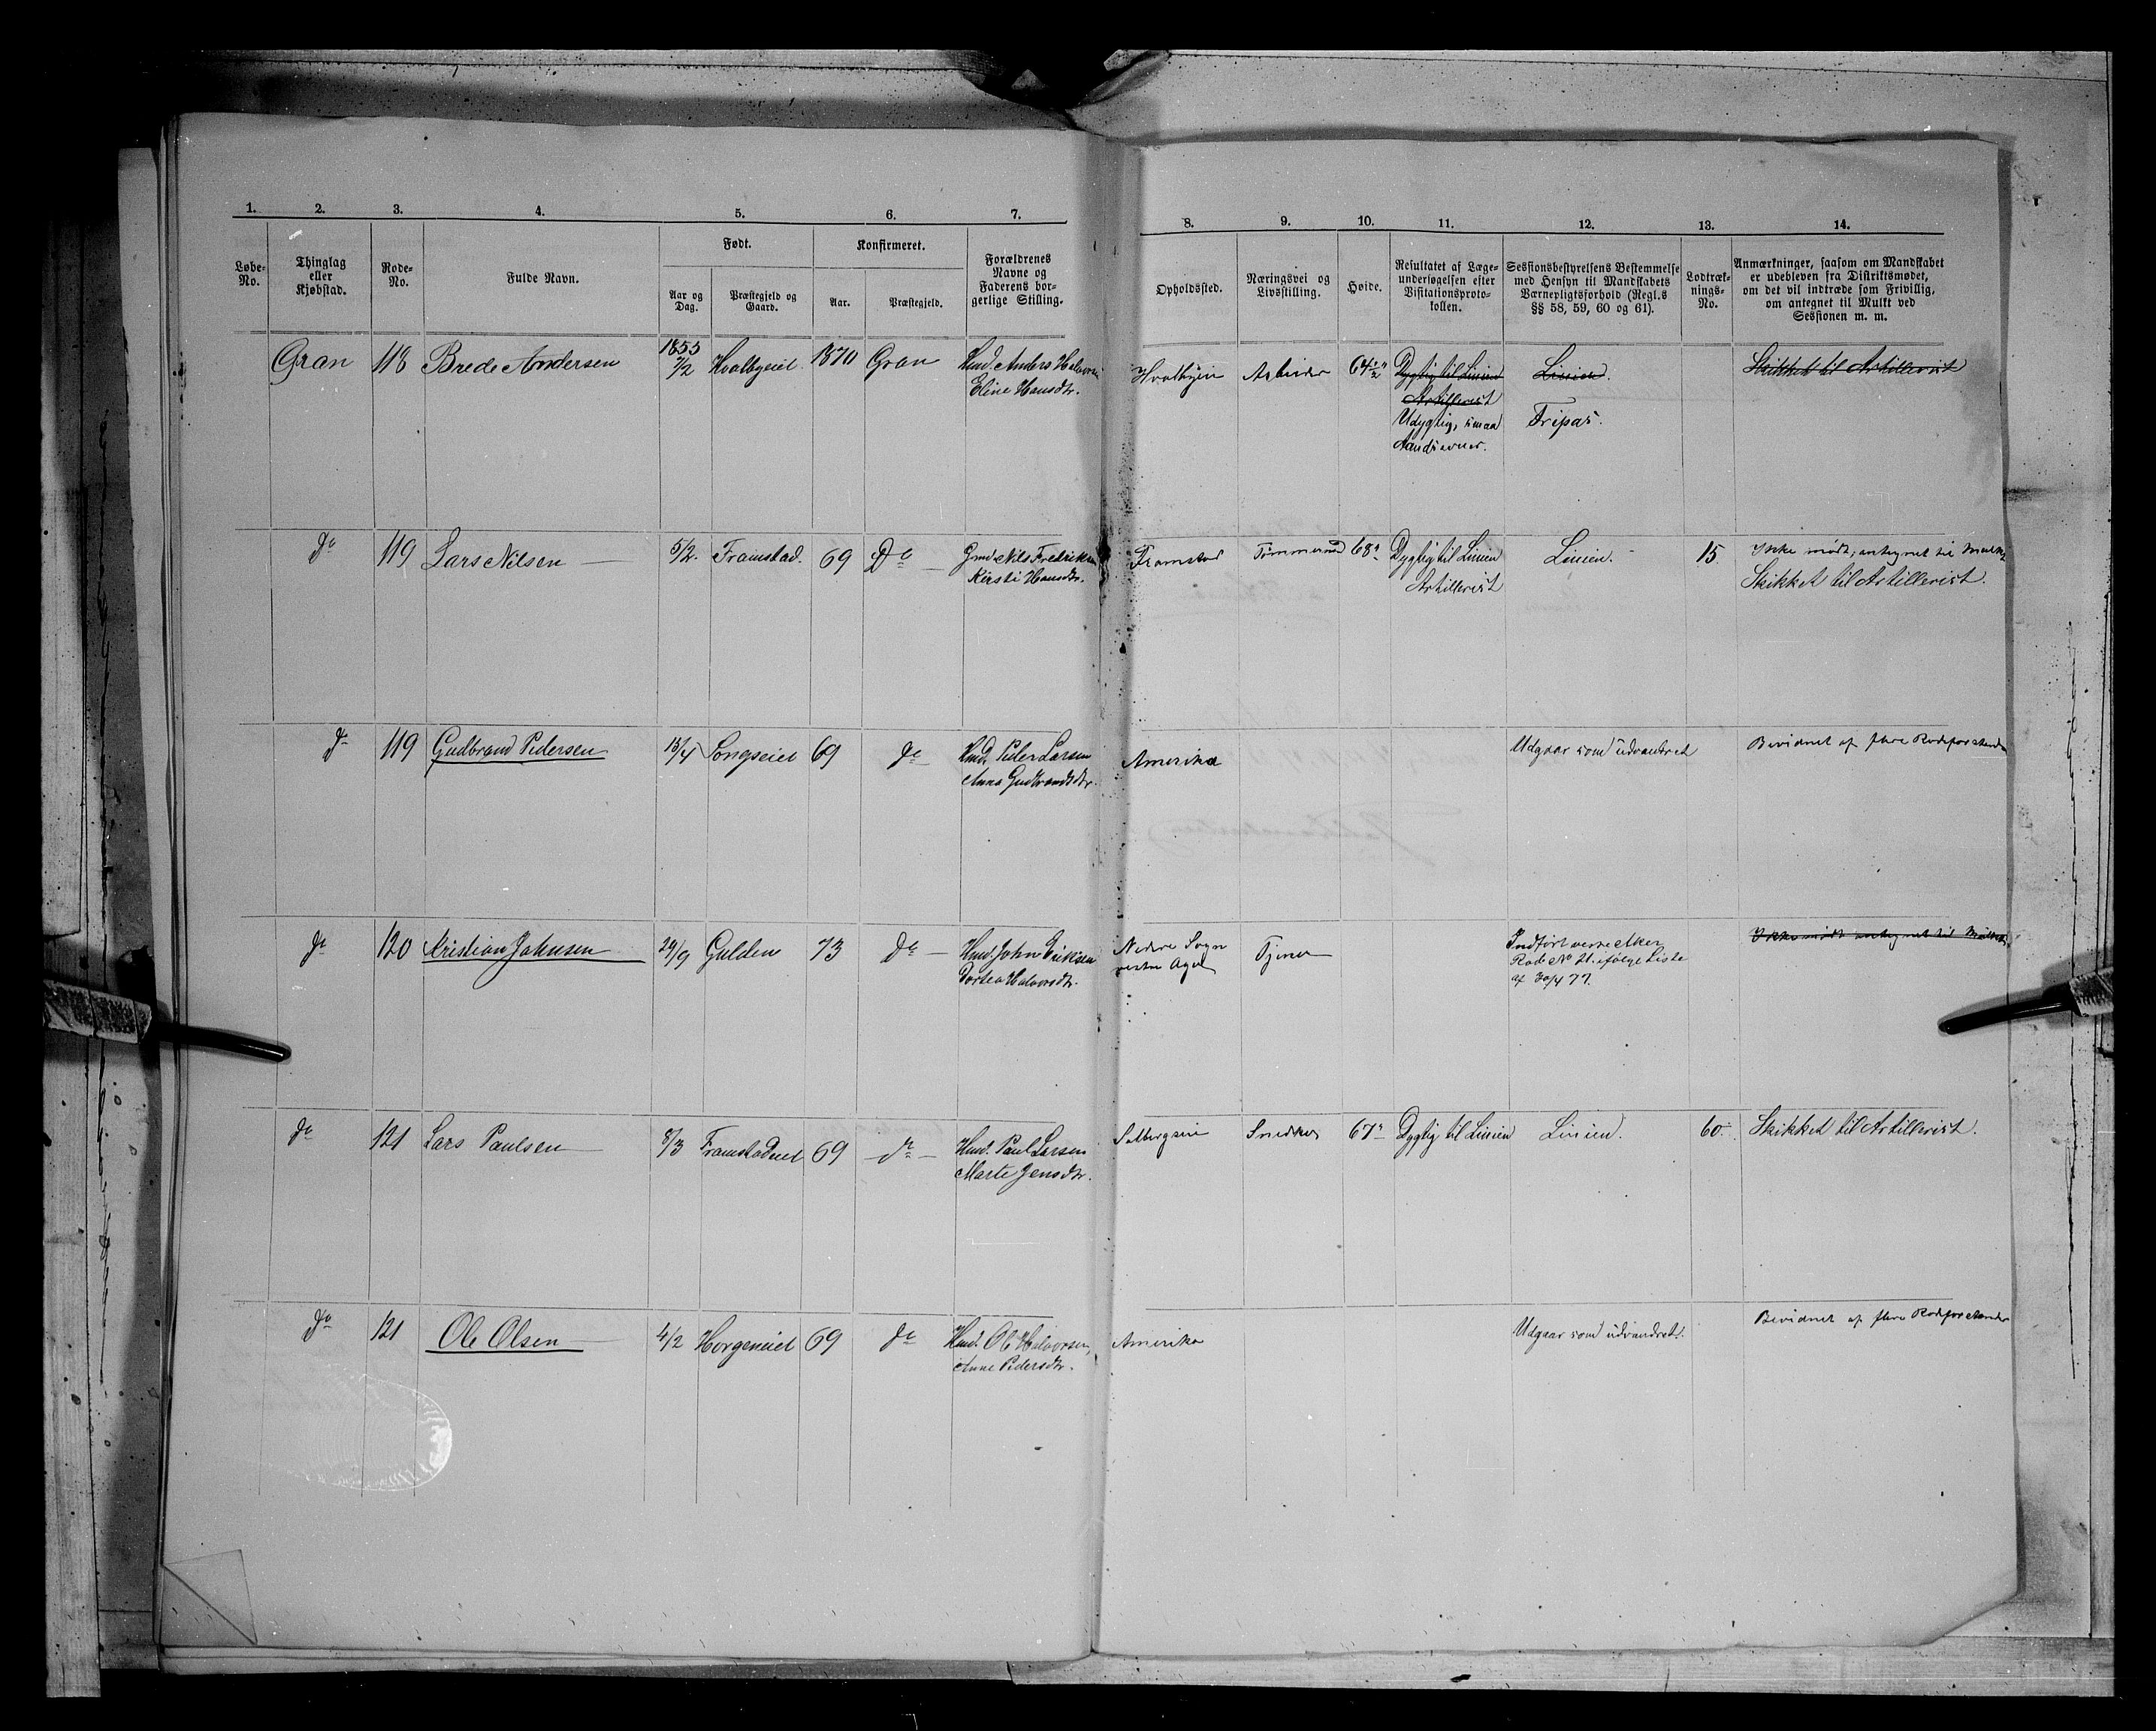 1. 2. 3. 4. 5. 6. 7. 8. 9. 10. 11. 12. 13. 14.
Løbe-
No.
Thinglag
eller
Kjøbstad.
Rode-
No.
Fulde Navn.
Født.
Aar og
Dag.
Præstegjeld og
Gaard.
Konfirmeret.
Aar.
Præstegjeld.
Forældrenes
Navne og
Faderens bor-
gerlige Stilling.
Opholdssted.
Næringsvei og
Livsstilling.
Høide.
Resultatet af Læge-
undersøgelsen efter
Visitationsproto-
kollen.
Sessionsbestyrelsens Bestemmelse
med Hensyn til Mandskabets
Værnepligtsforhold (Regl.s
§§ 58, 59, 60 og 61).
Lodtræk-
nings-
No.
Anmærkninger, saasom om Mandskabet
er udebleven fra Distriktsmødet,
om det vil indtræde som Frivillig,
om antegnet til Mulkt ved
Sessionen m. m.
Gran
118
Brede Andersen
1855
7/2
Hvalbyeiet
1870
Gran
Hmd. Anders Halvorsen
Eline Hansdtr.
Hvalbyeie
Arbeider
64½"
Dygtig til Linien
Artillerist
Udygtig, smaa
Aandsevner.
Linien.
Fripas.
Skikket til Artillerist
Do
119
Lars Nilsen
5/2.
Framstad.
69
Do
Gmd. Nils Fredriksen
Kirsti Hansdtr.
Framstad
Tømmermd
68"
Dygtig til Linien
Artillerist
Linien.
15
Ikke mødt, antegnet til Mulkt
Skikket til Artillerist.
Do
119
Gudbrand Pedersen
13/4
Longseiet
69
do
Hmd. Peder Larsen
Anna Gudbrandsdtr.
Amerika
Udgaar som udvandret
Bevidnet af flere Rodeforstandere
do
120
Kristian Johnsen
29/9
Gulden
73
Do
Hmd. John Eriksen
Dortea Halvorsdtr.
Nedre Sogn
vestre Aker
Tjener
Indført vestre Aker
Rode No 21. ifølge Liste
af 30/4 77.
Ikke mødt antegnet til Mulkt
do
121
Lars Paulsen
8/3
Framstadeiet
69
do
Hmd. Paul Larsen
Marte Jensdtr.
Solbergseie
Snedker
67"
Dygtig til Linien
Linien.
60
Skikket til Artillerist.
do
121
Ole Olsen
4/2
Horgeneiet
69
do
Hmd. Ole Halvorsen,
Anne Pedersdtr.
Amerika
Udgaar som udvandret.
Bevidnet af flere Rodeforstandere